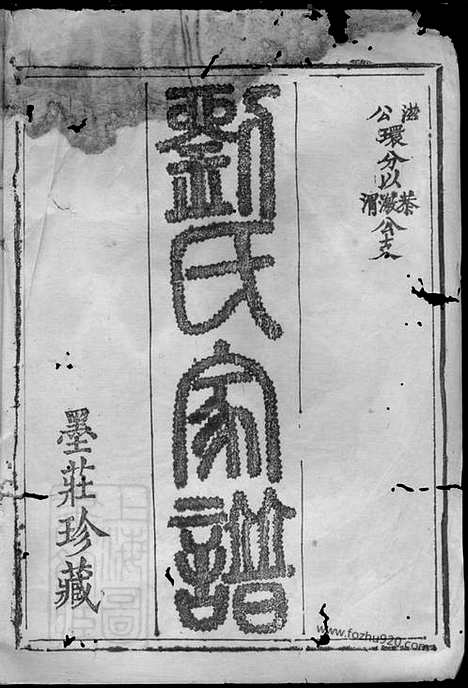 公環分以滋公支
劉氏家譜
墨莊珍藏
www.fozhu920.com